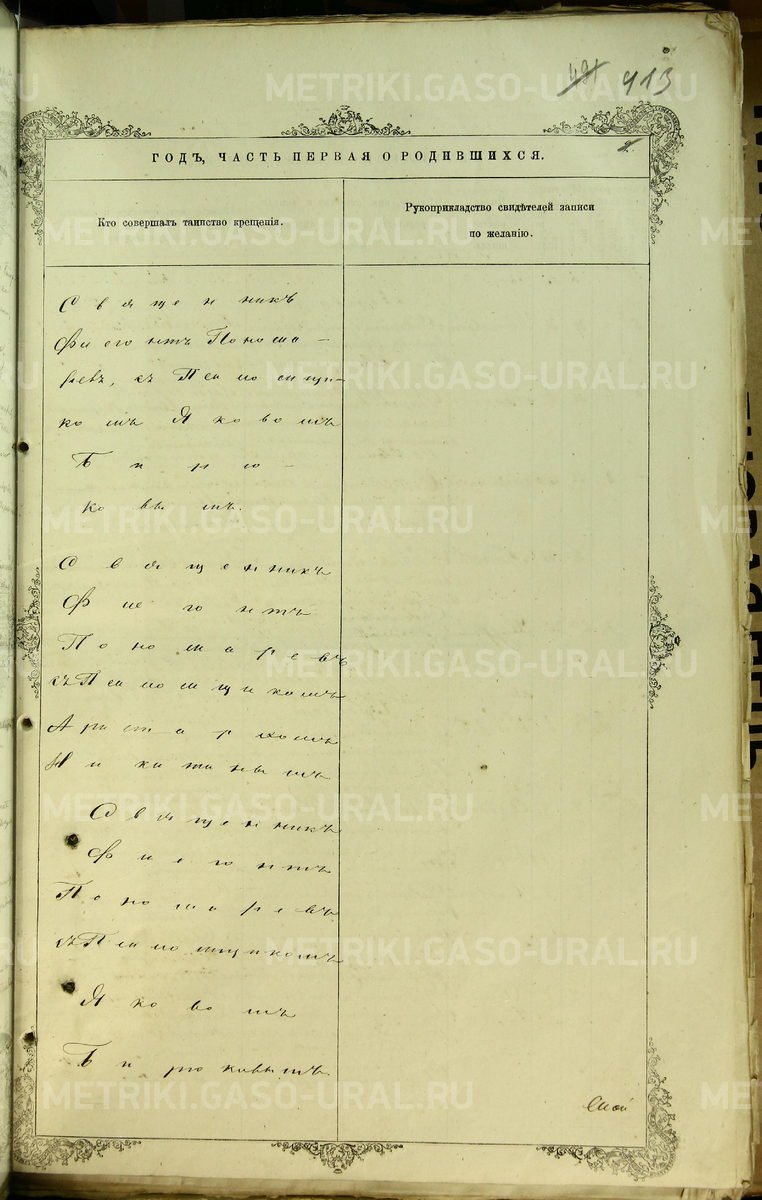 413
METRIKI.GASO-URAL.RU
ГОДЪ, ЧАСТЬ ПЕРВАЯ О РОДИВШИХСЯ.
Кто совершалъ таинство крещенія.
Рукоприкладство свидѣтелей записи
по желанію.
Священникъ
Фиегонтъ Понома-
ревъ, съ Псаломщи-
комъ Яковомъ
Бирю-
ковымъ.
Священникъ
Фиегонтъ
Пономаревъ
съ Псаломщикомъ
Аристархомъ
Никитинымъ
Священникъ
Фиегонтъ
Пономаревъ
съ Псаломщикомъ
Яковомъ
Бирюковымъ